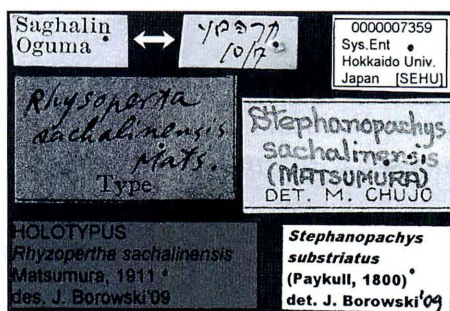 Saghalin
Oguma
10/7
0000007359
Sys.Ent
Hokkaido Univ.
Japan [SEHU]
Rhysoperta
sachalinensis
Mats.
Type
Stephanopachys
sachalinensis
(MATSUMURA)
DET. M. CHUJO
HOLOTYPUS
Rhyzopertha sachalinensis
Matsumura, 1911
des. J. Borowski'09
Stephanopachys
substriatus
(Paykull, 1800)
det. J. Borowski'09